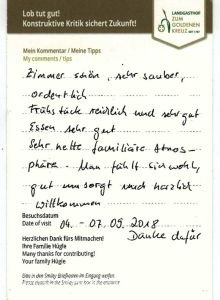 Lob tut gut!
Konstruktive Kritik sichert Zukunft!
LANDGASTHOF
ZUM
GOLDENEN
KREUZ
Mein Kommentar / Meine Tipps
My comments / tips
Zimmer schön, sehr sauber,
ordentlich
Frühstück reichlich und sehr gut
Essen sehr gut
Sehr nette familiäre Atmos-
phäre. Man fühlt sich wohl,
gut umsorgt und herzlich
willkommen
Besuchsdatum
Date of visit 04. - 07. 05. 2018
Danke dafür
Herzlichen Dank fürs Mitmachen!
Ihre Familie Hügle
Many thanks for contributing!
Your family Hügle
Bitte in den Smiley Briefkasten im Eingang werfen.
Please deposit in the Smiley post box in the entrance